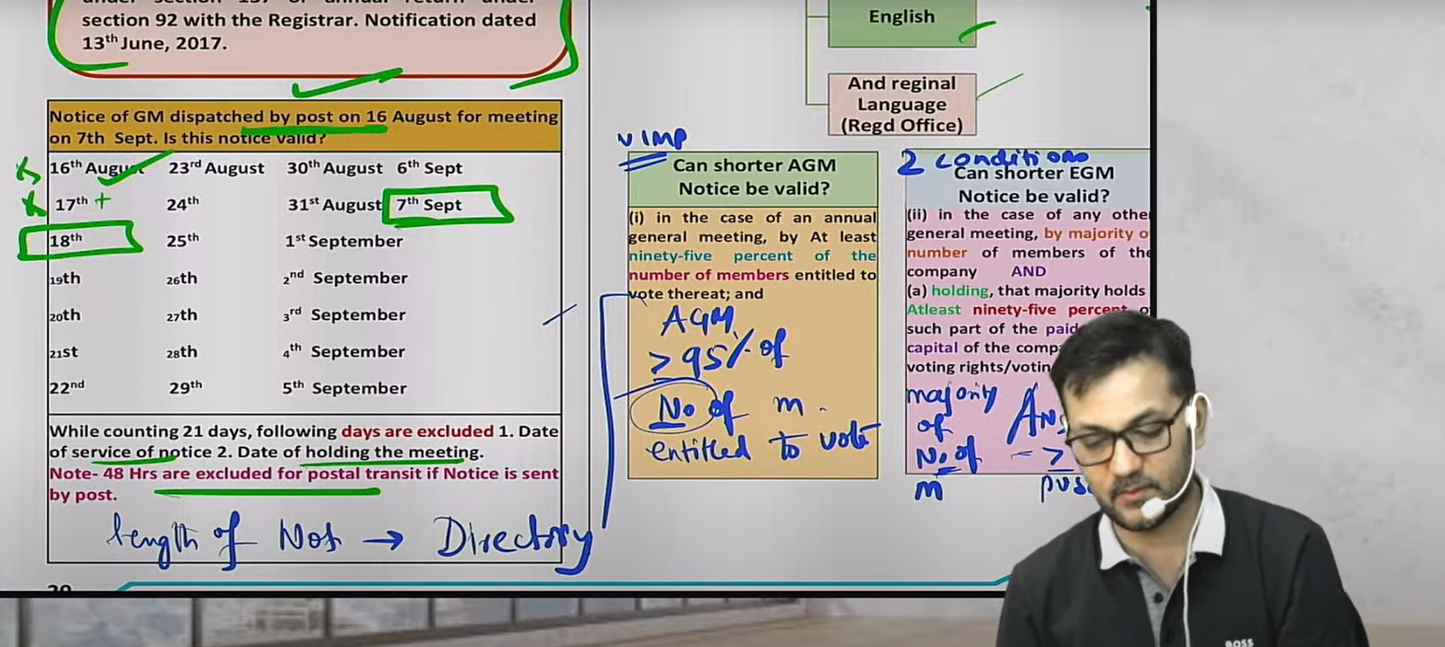 section 92 with the Registrar. Notification dated
13th June, 2017.
English
And reginal
Language
(Regd Office)
Notice of GM dispatched by post on 16 August for meeting
on 7th Sept. Is this notice valid?
16th August 23rd August 30th August 6th Sept
17th + 24th 31st August 7th Sept
18th 25th 1st September
19th 26th 2nd September
20th 27th 3rd September
21st 28th 4th September
22nd 29th 5th September
While counting 21 days, following days are excluded 1. Date
of service of notice 2. Date of holding the meeting.
Note- 48 Hrs are excluded for postal transit if Notice is sent
by post.
length of Not → Directory
v IMP
Can shorter AGM
Notice be valid?
(i) in the case of an annual
general meeting, by At least
ninety-five percent of the
number of members entitled to
vote thereat; and
AGM
≥ 95% of
No of m.
entitled to vote
2 conditions
Can shorter EGM
Notice be valid?
(ii) in the case of any other
general meeting, by majority o
number of members of the
company AND
(a) holding, that majority holds
Atleast ninety-five percent o
such part of the paid
capital of the comp
voting rights/votin
majority
of
No of
m
BOSS